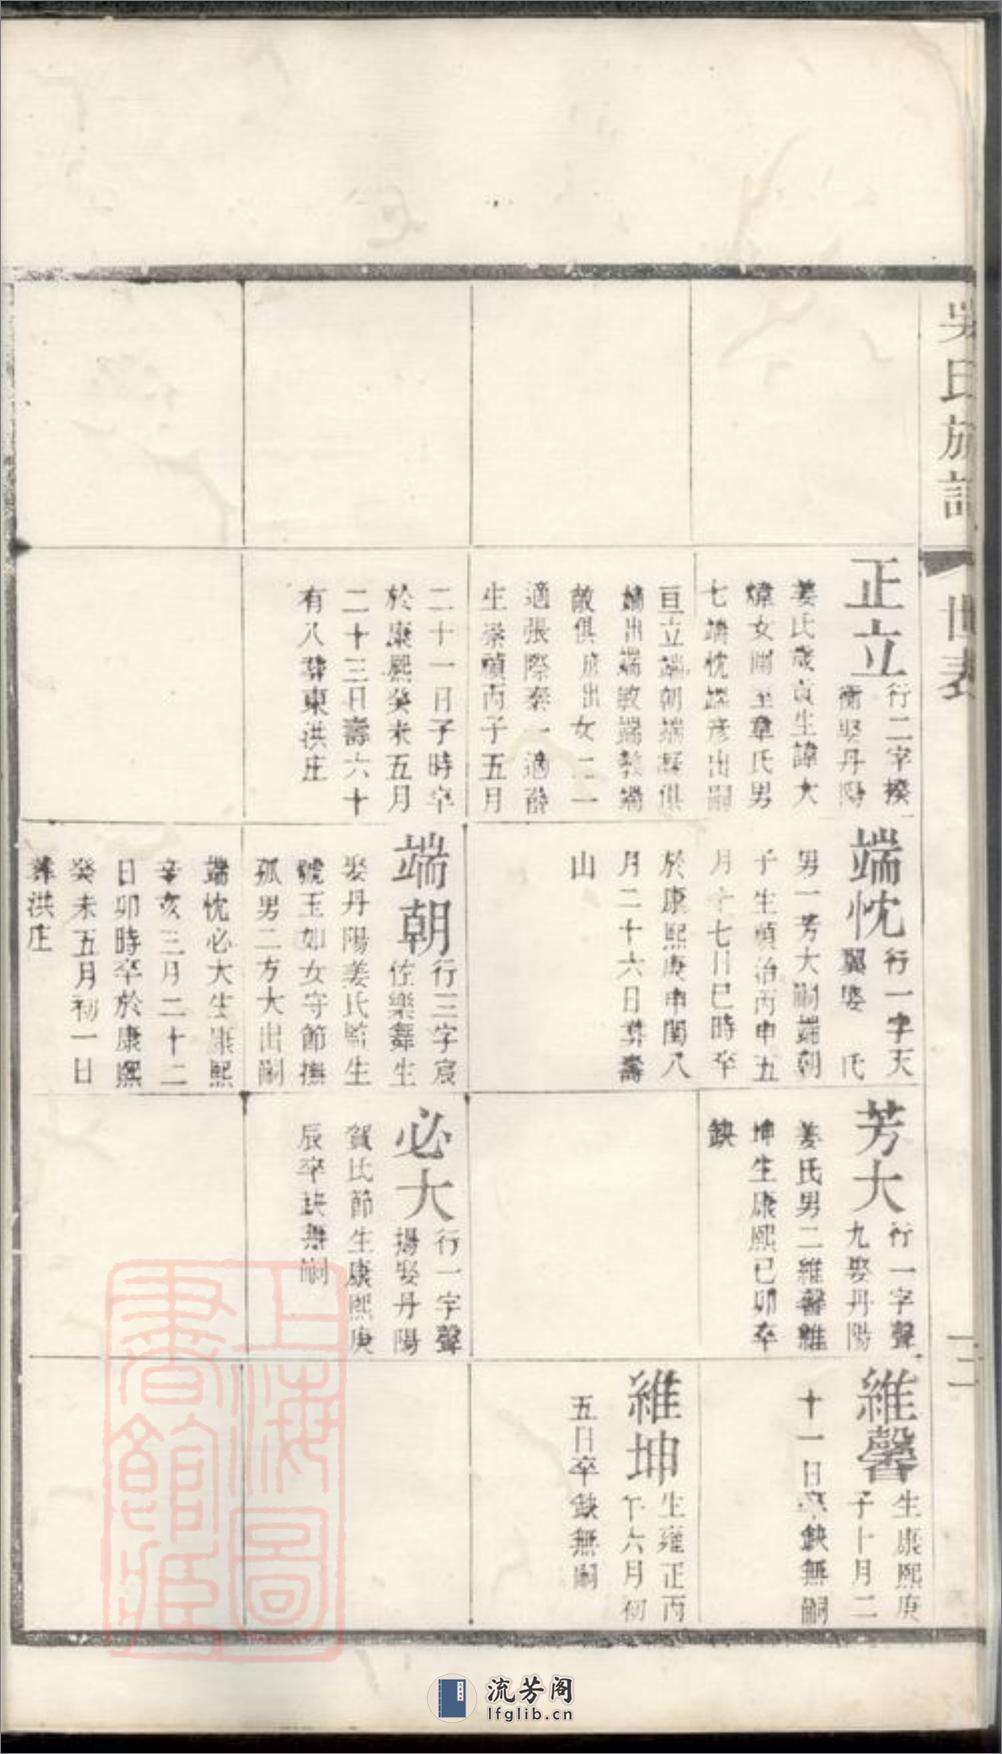 吳氏族譜
世表
三
正立
行二字揆
衡娶丹陽
姜氏歲貢生諱大
煒女關至韋氏男
七端忱端彦出嗣
亘立端朝端凝俱
姜出端敏端教端
敵俱 出女二一
適張際泰一適
生崇禎丙子五月
二十一日子時卒
於康熙癸未五月
二十三日壽六十
有八葬東洪庄
端忱
行一字天
翼娶 氏
男一芳大嗣端朝
子生順治丙申五
月十七日巳時卒
於康熙庚申閏八
月二十六日葬壽
山
端朝
行三字宸
佐樂舞生
娶丹陽姜氏監生
號玉如女守節撫
孤男二方大出嗣
端忱必大生康熙
辛亥三月二十二
日卯時卒於康熙
癸未五月初一日
葬洪庄
芳大
行一字聲
九娶丹陽
姜氏男二維馨維
坤生康熙己卯卒
缺
必大
行一字聲
揚娶丹陽
賀氏節生康熙庚
辰卒缺無嗣
維馨
生康熙庚
子十月二
十一日卒缺無嗣
維坤
生雍正丙
午六月初
五日卒缺無嗣
上海圖
書館藏
流芳阁
lfglib.cn